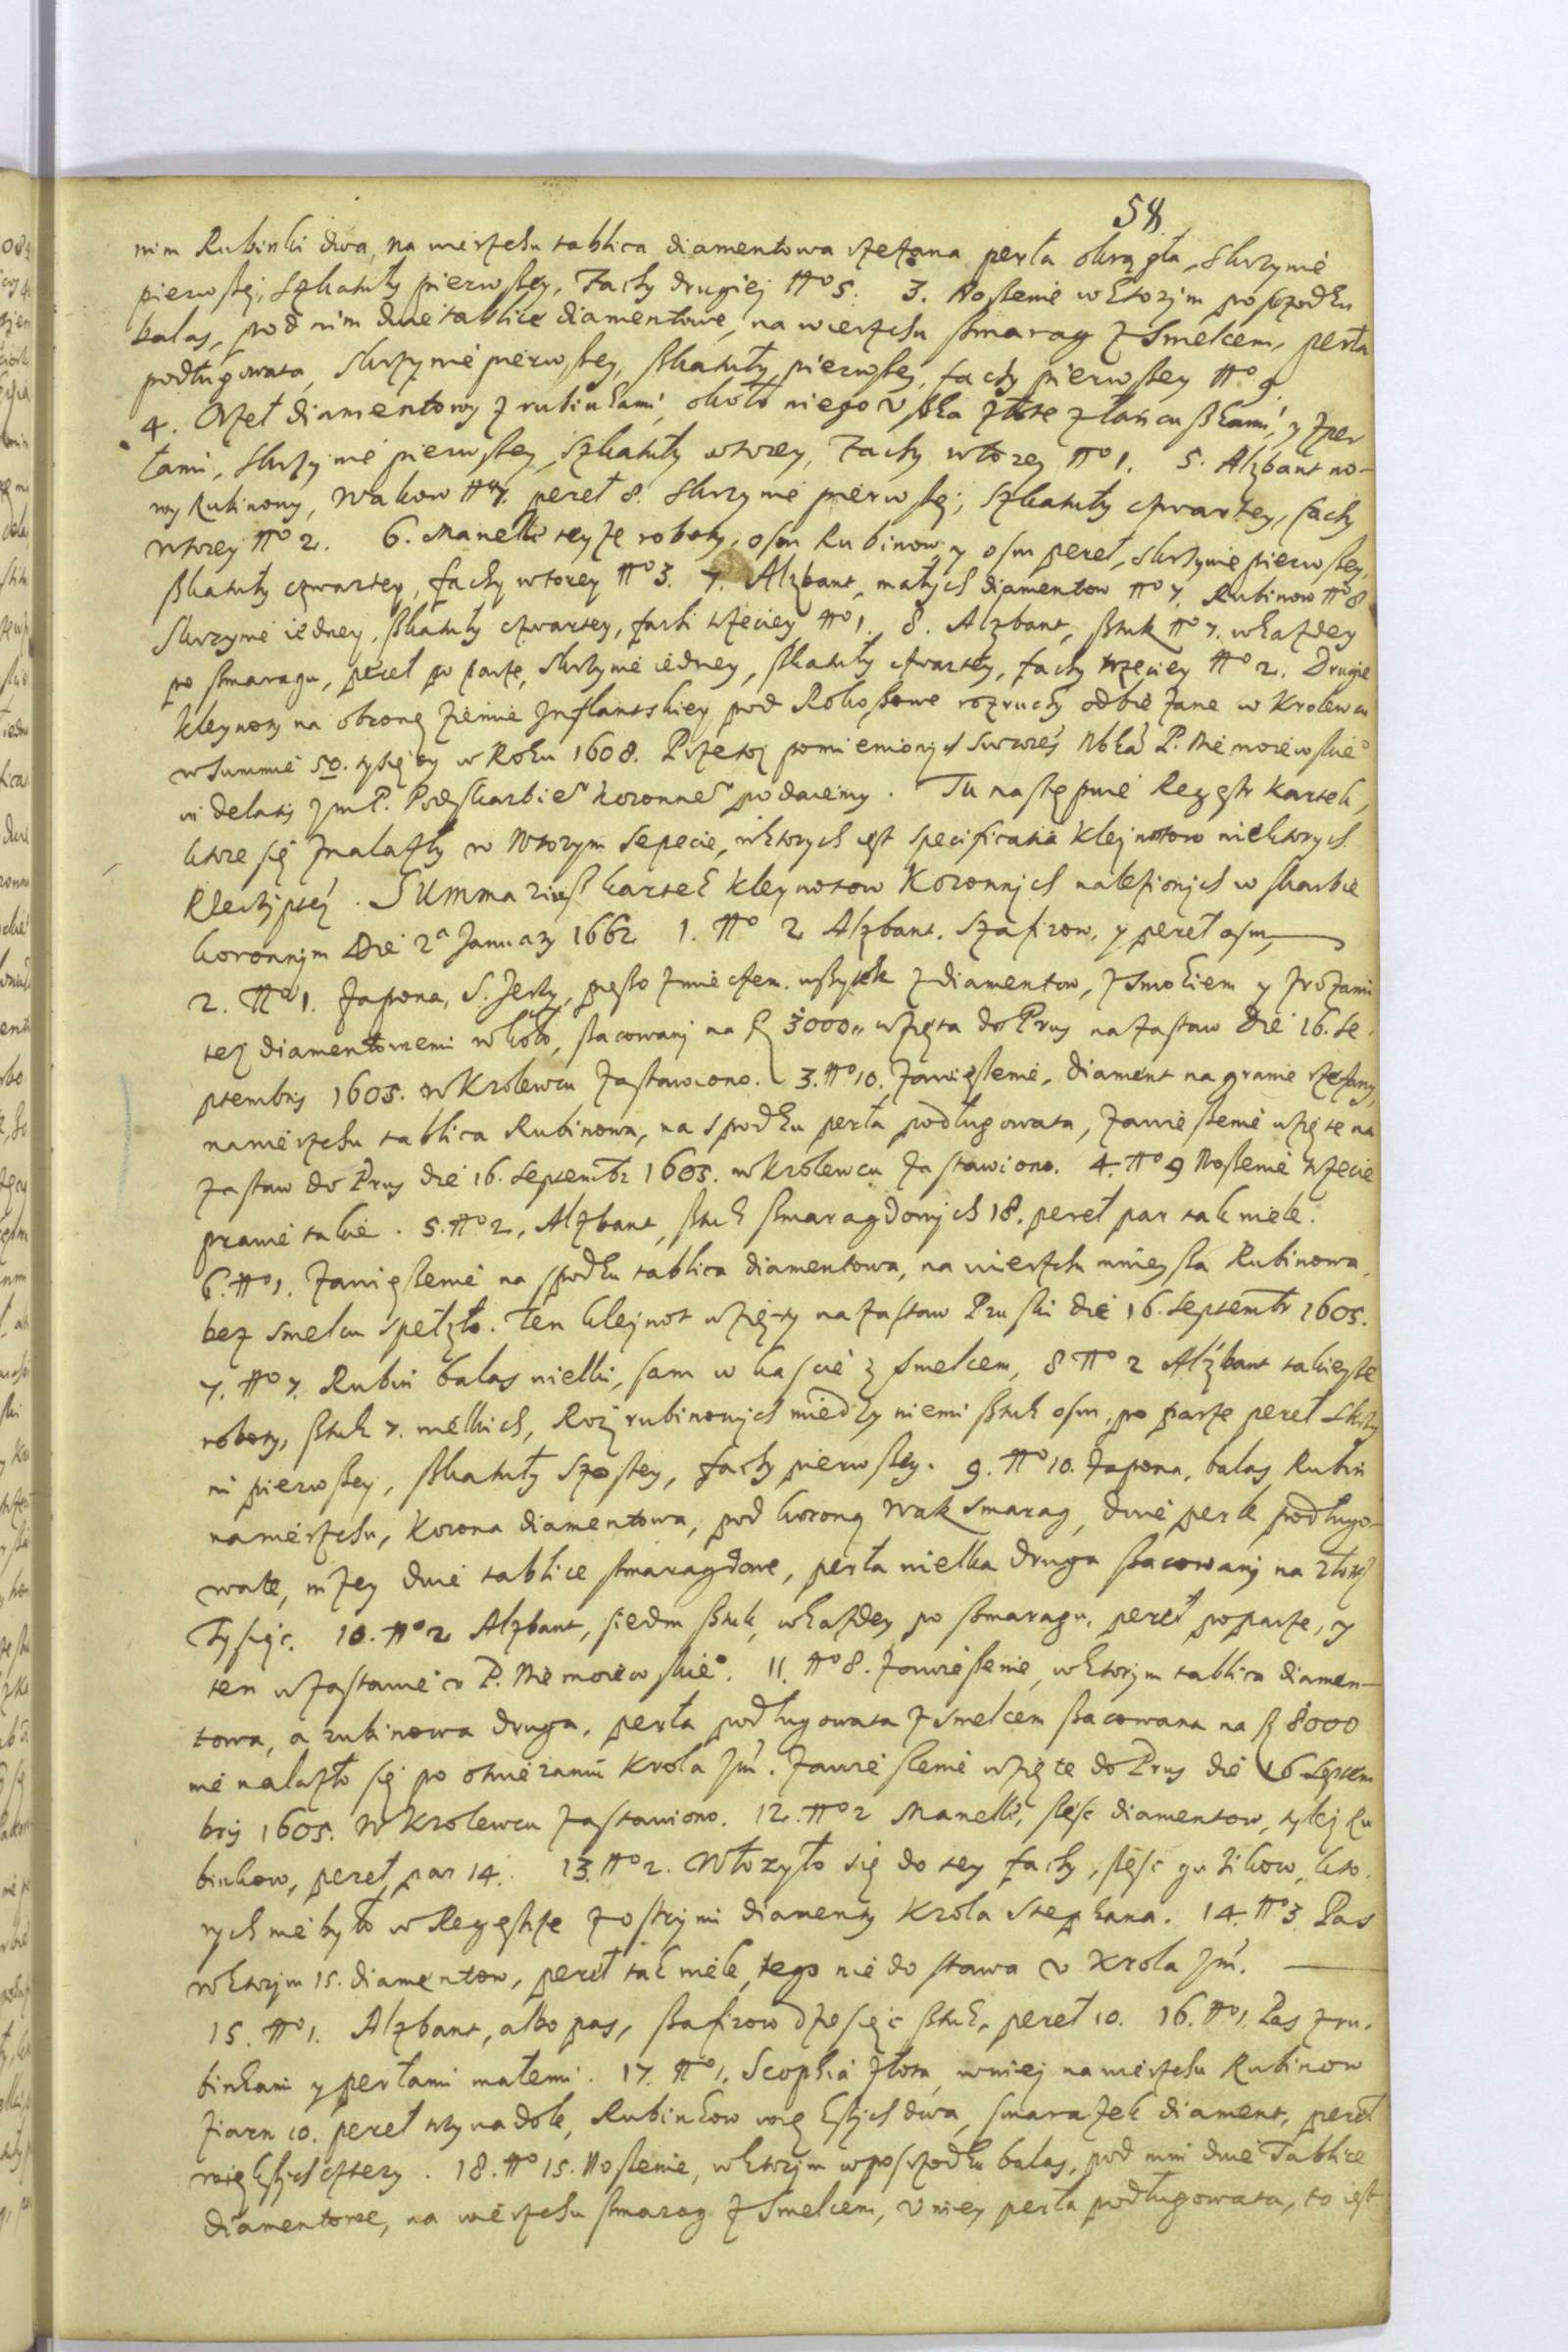 58.
nim Rubinki dwa, na wierzchu tablica diamentowa rzezana perła okrągła, skrzynie
pierwszej, szkatuły pierwszey, Fachy drugiej Nº 5. 3. Noszenie w ktorym pośrzodku
balas, pod nim dwie tablice diamentowe, na wierzchu szmarag z smelcem, perła
podługowata, skrzynie pierwszey, szkatuły pierwszey, fachy pierwszey Nº 9.
4. Orzeł diamentowy z rubinkami, około niego uszka złote z łańcuszkami, y z per
łami, skrzynie pierwszey, szkatuły wtorey, Fachy wtorey Nº 1. 5. Alzbant no-
wy Rubinowy, wakow Nº 7. pereł 8. skrzynie pierwszej, szkatuły czwartey, fachy
wtorey Nº 2. 6. Manelli teyże roboty, osm Rubinow y osm pereł, skrzynie pierwszey,
szkatuły czwartey, fachy wtorey Nº 3. 7. Alzbant, małych diamentow Nº 7. Rubinow Nº 8
skrzynie iedney, szkatuły czwartey, fachi trzeciey Nº 1. 8. Alzbant, sztuk Nº 7. w każdey
po szmaragu, pereł po parze, skrzynie iedney, szkatuły czwartey, fachy trzeciey Nº 2. Drugie
kleynoty na obronę ziemie Inflantskiey pod Rokoszowe rozruchy odbieżane w Krolewcu
w summie 50. tysięcy w Roku 1608. Przetoż pomienionych surowść P. Niemoiewskie°
in delatis Jmć P. Podskarbie° koronne° podaiemy. Tu następuie Regestr kartek,
ktore się znalazły w wtorym sepecie, w ktorych iest specificatia klejnotow niektorych
Rzeczypltej. Summariusz kartek kleynotow Koronnych nalezionych w skarbie
koronnym Die 2ª January 1662 1. Nº 2 Alzbant. szafirow, y pereł osm,
2. Nº 1. Zapona, S. Jerzy, pieszo z mieczem. wszytek z diamentow, z smokiem y z rożami
też diamentowemi w koło, szacowany na fl 3000,, wzięta do Prus na zastaw Die 16. Se
ptembris 1605. w Krolewcu zastawiono. 3. Nº 10. Zawieszenie, diament na granie rzezany,
na wierzchu tablica Rubinowa, na spodku perła podługowata, zawieszenie wzięte na
zastaw do Prus die 16. Septembr 1605. w Krolewcu zastawiono. 4. Nº 9 Noszenie trzecie
prawie takie. 5. Nº 2, Alzbant, sztuk szmaragdowych 18. pereł par tak wiele.
6. Nº 1. Zawieszenie na spodku tablica diamentowa, na wierzchu mnieysza Rubinowa,
bez smelcu spełzło. Ten klejnot wzięty na zastaw Pruski die 16. Septembr 1605.
7. Nº 7. Rubin balas wielki, sam w kaście z smelcem, 8 Nº 2 Alzbant takieyże
roboty, sztuk 7. wielkich, Roż rubinowych miedzy niemi sztuk osm, po parze pereł skrzy
ni pierwszey, szkatuły szostey, fachy pierwszey. 9. Nº 10. Zapona, balas Rubin
na wierzchu, Korona diamentowa, pod koroną wrak smarag, dwie perle podługo-
wate, niżey dwie tablice szmaragdowe, perła wielka druga szacowany na złotych
Tysiąc. 10. Nº 2 Alzbant, siedm sztuk, w każdey po szmaragu. pereł po parze, y
ten w zastawie u P. Niemoiewskie°. 11. Nº 8. Zawieszenie, w ktorym tablica diamen-
towa, a rubinowa druga, perła podługowata z smelcem szacowana na fl 8000
nie nalazło się po otwieraniu Krola Jmć. Zawieszenie wzięte do Prus die 16 Septem
bris 1605. w Krolewcu zastawiono. 12. Nº 2 Manelli, sześć diamentow, tylej Ru
binkow, pereł par 14. 13. Nº 2. Włożyło się do tey fachy, sześć guzikow, kto
rych nie było w Regestrze z ostrymi diamenty Krola Stephana. 14. Nº 3. Pas
w ktorym 15. diamentow, pereł tak wiele, tego nie dostawa u Krola Jmć.
15. Nº 1. Alzbant, albo pas, szafirow dziesięć sztuk, pereł 10. 16. Nº 1. Pas z ru-
binkami y perłami małemi. 17. Nº 1. Scophia złota, w niej na wierzchu Rubinow
ziarn 10. pereł trzy na dole, Rubinkow większych dwa, smarażek diament, pereł
większych cztery. 18. Nº 15. Noszenie, w ktorym w pośrzodku balas, pod nim dwie Tablice
diamentowe, na wierzchu szmarag z smelcem, u niey perła podługowata, to iest